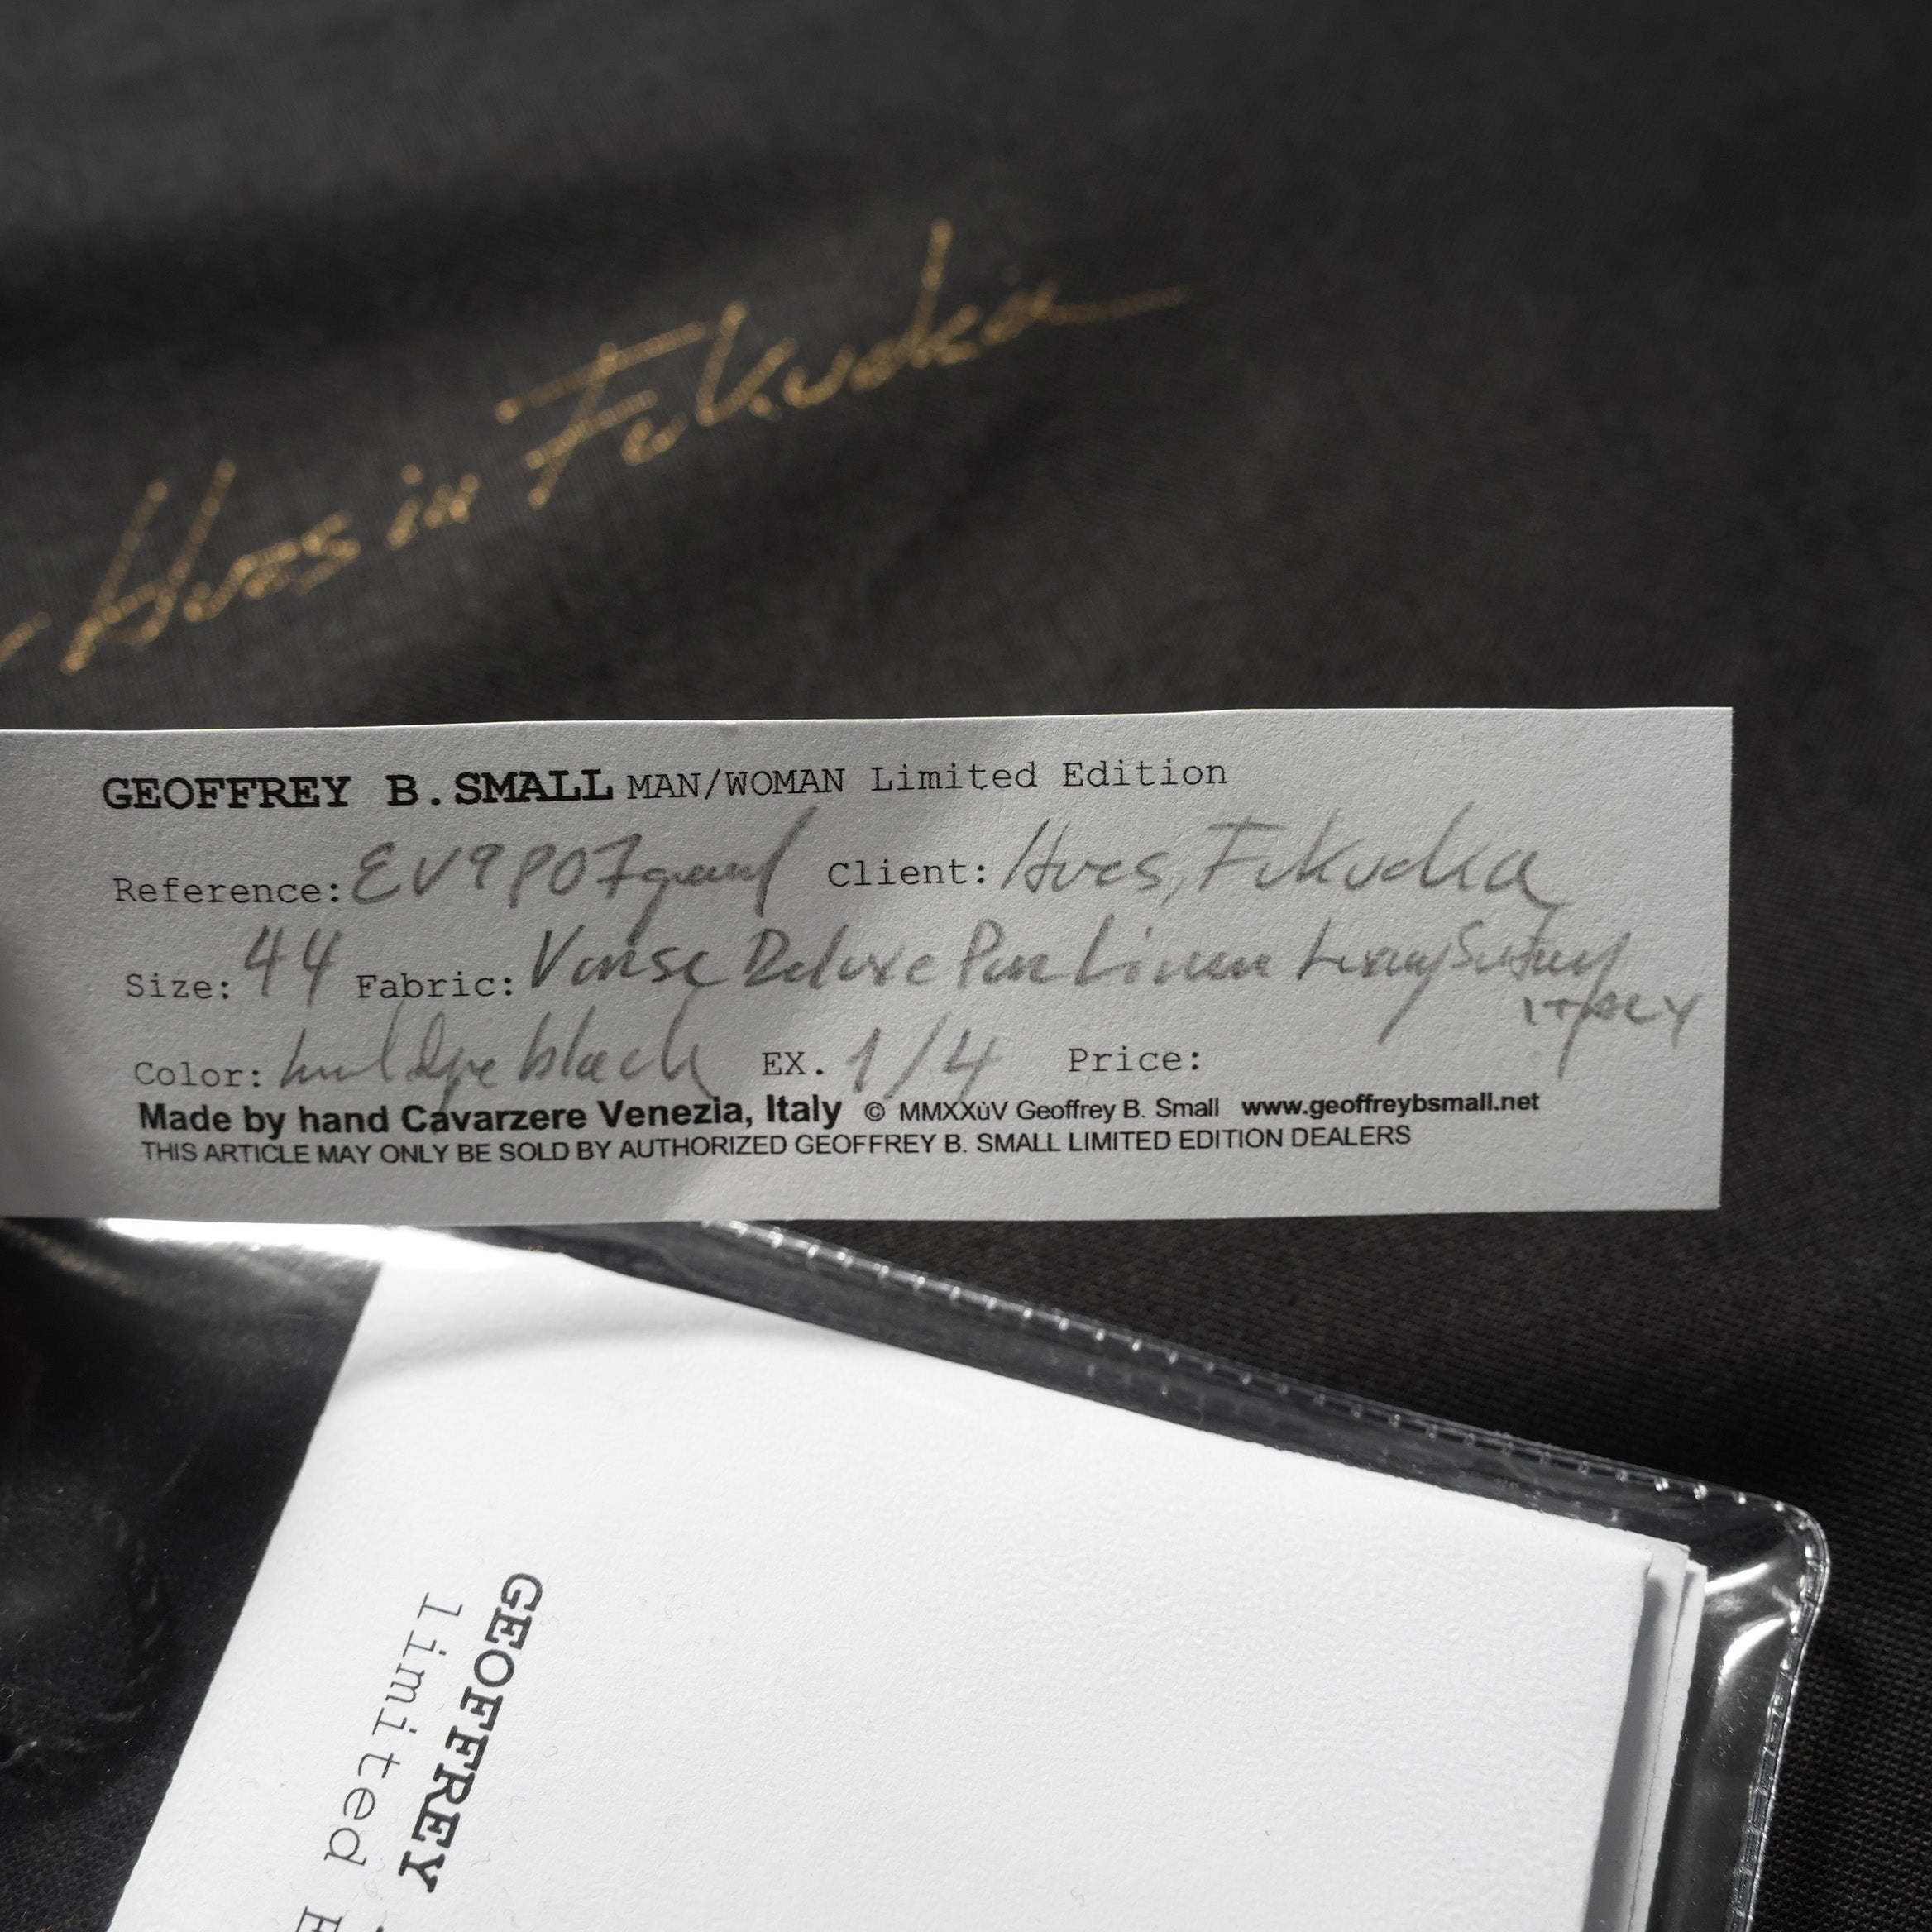 Hues in Fukuoka
GEOFFREY B. SMALL MAN/WOMAN Limited Edition
Reference: Client: Hues, Fukuoka
Size: 44 Fabric: Deluxe Pure Linen
ITALY
Color: black EX. 1/4 Price:
Made by hand Cavarzere Venezia, Italy © MMXXùV Geoffrey B. Small www.geoffreybsmall.net
THIS ARTICLE MAY ONLY BE SOLD BY AUTHORIZED GEOFFREY B. SMALL LIMITED EDITION DEALERS
GEOFFREY
limited